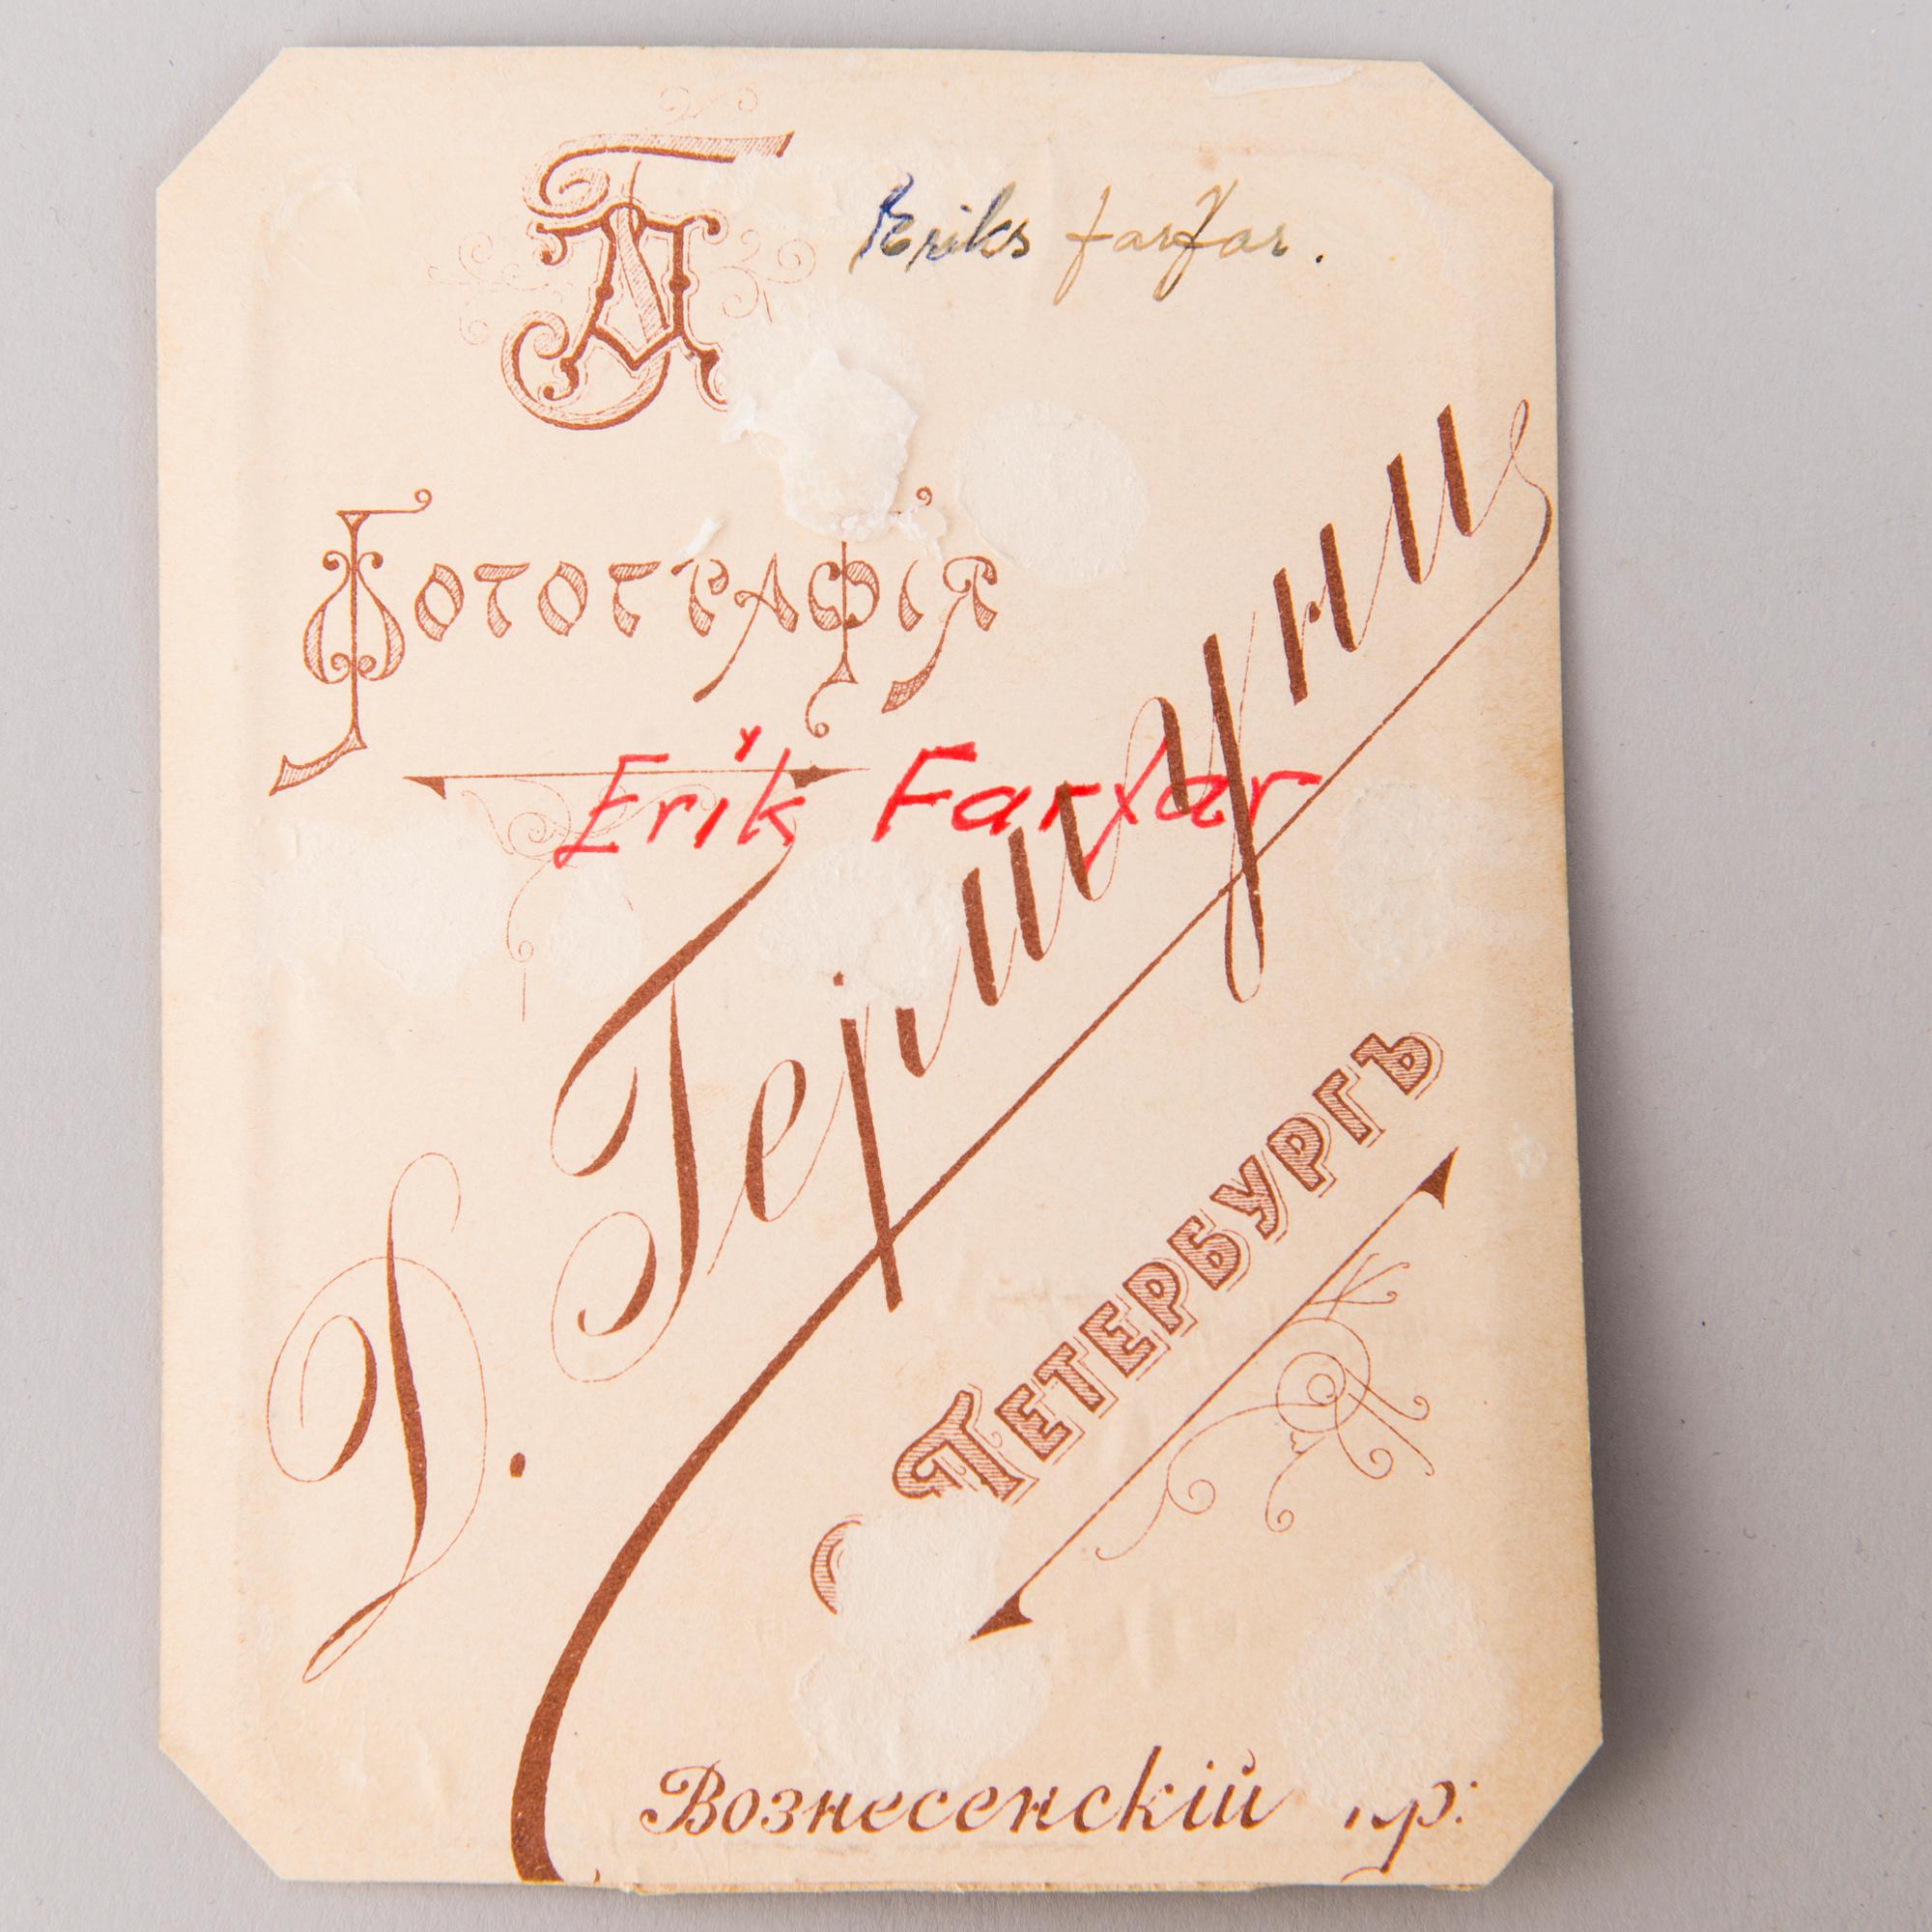 Eriks farfar.
Фотографія
Erik Farfar
Д. Гершуни
С Петербургъ
Вознесенскій пр: